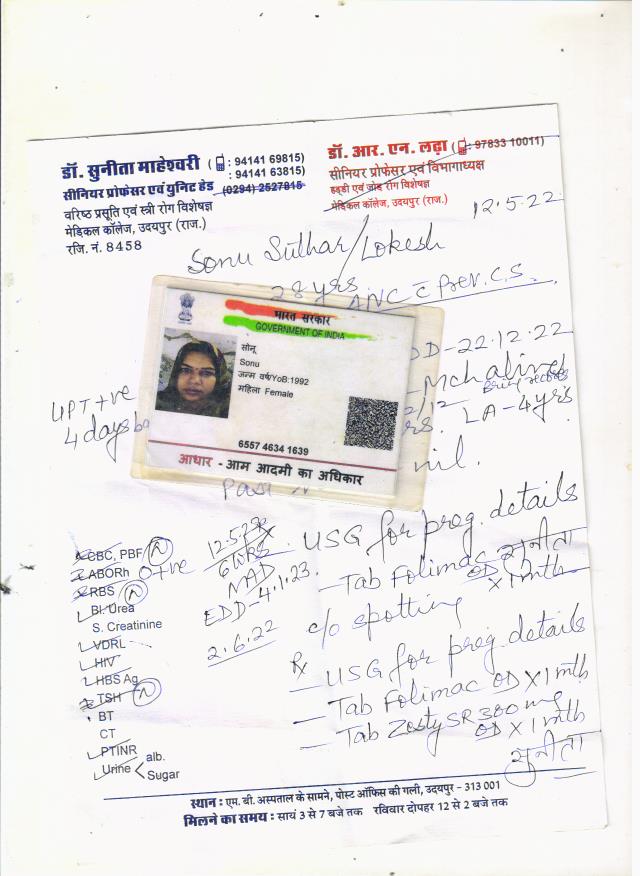 डॉ. सुनीता माहेश्वरी ( : 94141 69815)
: 94141 63815)
सीनियर प्रोफेसर एवं यूनिट हेड (0294) 2527815
वरिष्ठ प्रसूति एवं स्त्री रोग विशेषज्ञ
मेडिकल कॉलेज, उदयपुर (राज.)
रजि. नं. 8458
डॉ. आर. एन. लढ़ा ( : 97833 10011)
सीनियर प्रोफेसर एवं विभागाध्यक्ष
हड्डी एवं जोड़ रोग विशेषज्ञ
मेडिकल कॉलेज, उदयपुर (राज.)
12.5.22
Sonu Suthar/Lokesh
28 yrs.
ANC c Prev. C.S.
DD-22.12.22
Mch alive
2/12
LA-4yrs
nil.
UPT +ve
4 days
भारत सरकार
GOVERNMENT OF INDIA
सोनू
Sonu
जन्म वर्ष/YoB:1992
महिला Female
6557 4634 1639
आधार - आम आदमी का अधिकार
CBC, PBF N
ABORh O+ve
RBS N
Bl. Urea
S. Creatinine
VDRL
HIV
HBS Ag
TSH N
BT
CT
PTINR
Urine alb.
Sugar
12.5.22
6wks
NAD
EDD-4.1.23
USG for preg. details
Tab Folimac OD X1 mth
सुनीता
2.6.22
c/o spotting
Rx
- USG for preg. details
- Tab Folimac OD X1 mth
- Tab Zesty SR 300 mg
OD X1 mth
सुनीता
स्थान : एम. बी. अस्पताल के सामने, पोस्ट ऑफिस की गली, उदयपुर - 313 001
मिलने का समय : सायं 3 से 7 बजे तक रविवार दोपहर 12 से 2 बजे तक